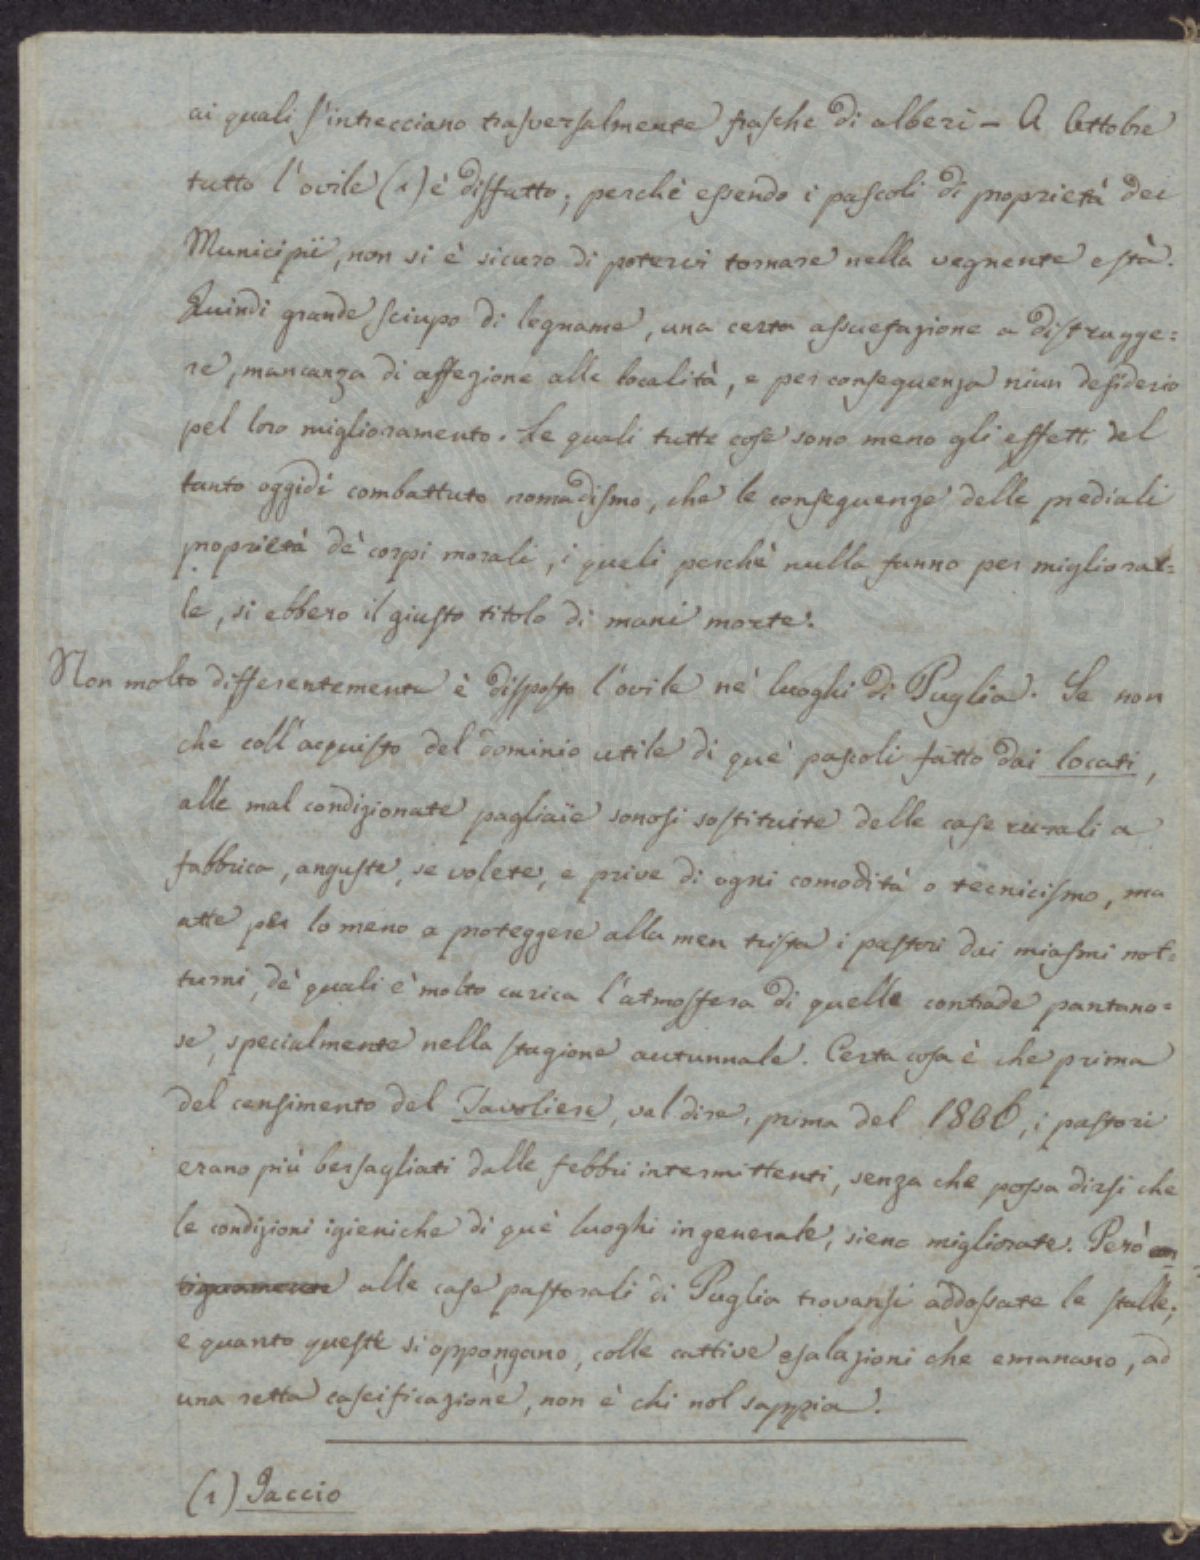 ai quali s'intrecciano trasversalmente frasche di alberi – A Ottobre
tutto l'ovile (1) è disfatto; perchè essendo i pascoli di proprietà dei
Municipii, non si è sicuro di potervi tornare nella vegnente està.
Quindi grande sciupo di legname, una certa assuefazione a distrugge=
re, mancanza di affezione alle località, e per conseguenza niun desiderio
pel loro miglioramento. Le quali tutte cose sono meno gli effetti del
tanto oggidì combattuto nomadismo, che le conseguenze delle prediali
proprietà de' corpi morali, i quali perchè nulla fanno per migliorar=
le, si ebbero il giusto titolo di mani morte.
Non molto differentemente è disposto l'ovile ne' luoghi di Puglia. Se non
che coll'acquisto del dominio utile di que' pascoli fatto dai locati,
alle mal condizionate pagliaie sonosi sostituite delle case rurali a
fabbrica, anguste, se volete, e prive di ogni comodità o tecnicismo, ma
atte per lo meno a proteggere alla men trista i pastori dai miasmi not=
turni, de' quali è molto carica l'atmosfera di quelle contrade pantano=
se, specialmente nella stagione autunnale. Certa cosa è che prima
del censimento del Tavoliere, val dire, prima del 1806, i pastori
erano più bersagliati dalle febbri intermittenti, senza che possa dirsi che
le condizioni igieniche di que' luoghi in generale, sieno migliorate. Però
alle case pastorali di Puglia trovansi addossate le stalle;
e quanto queste si oppongano, colle cattive esalazioni che emanano, ad
una retta caseificazione, non è chi nol sappia.
(1) Jaccio